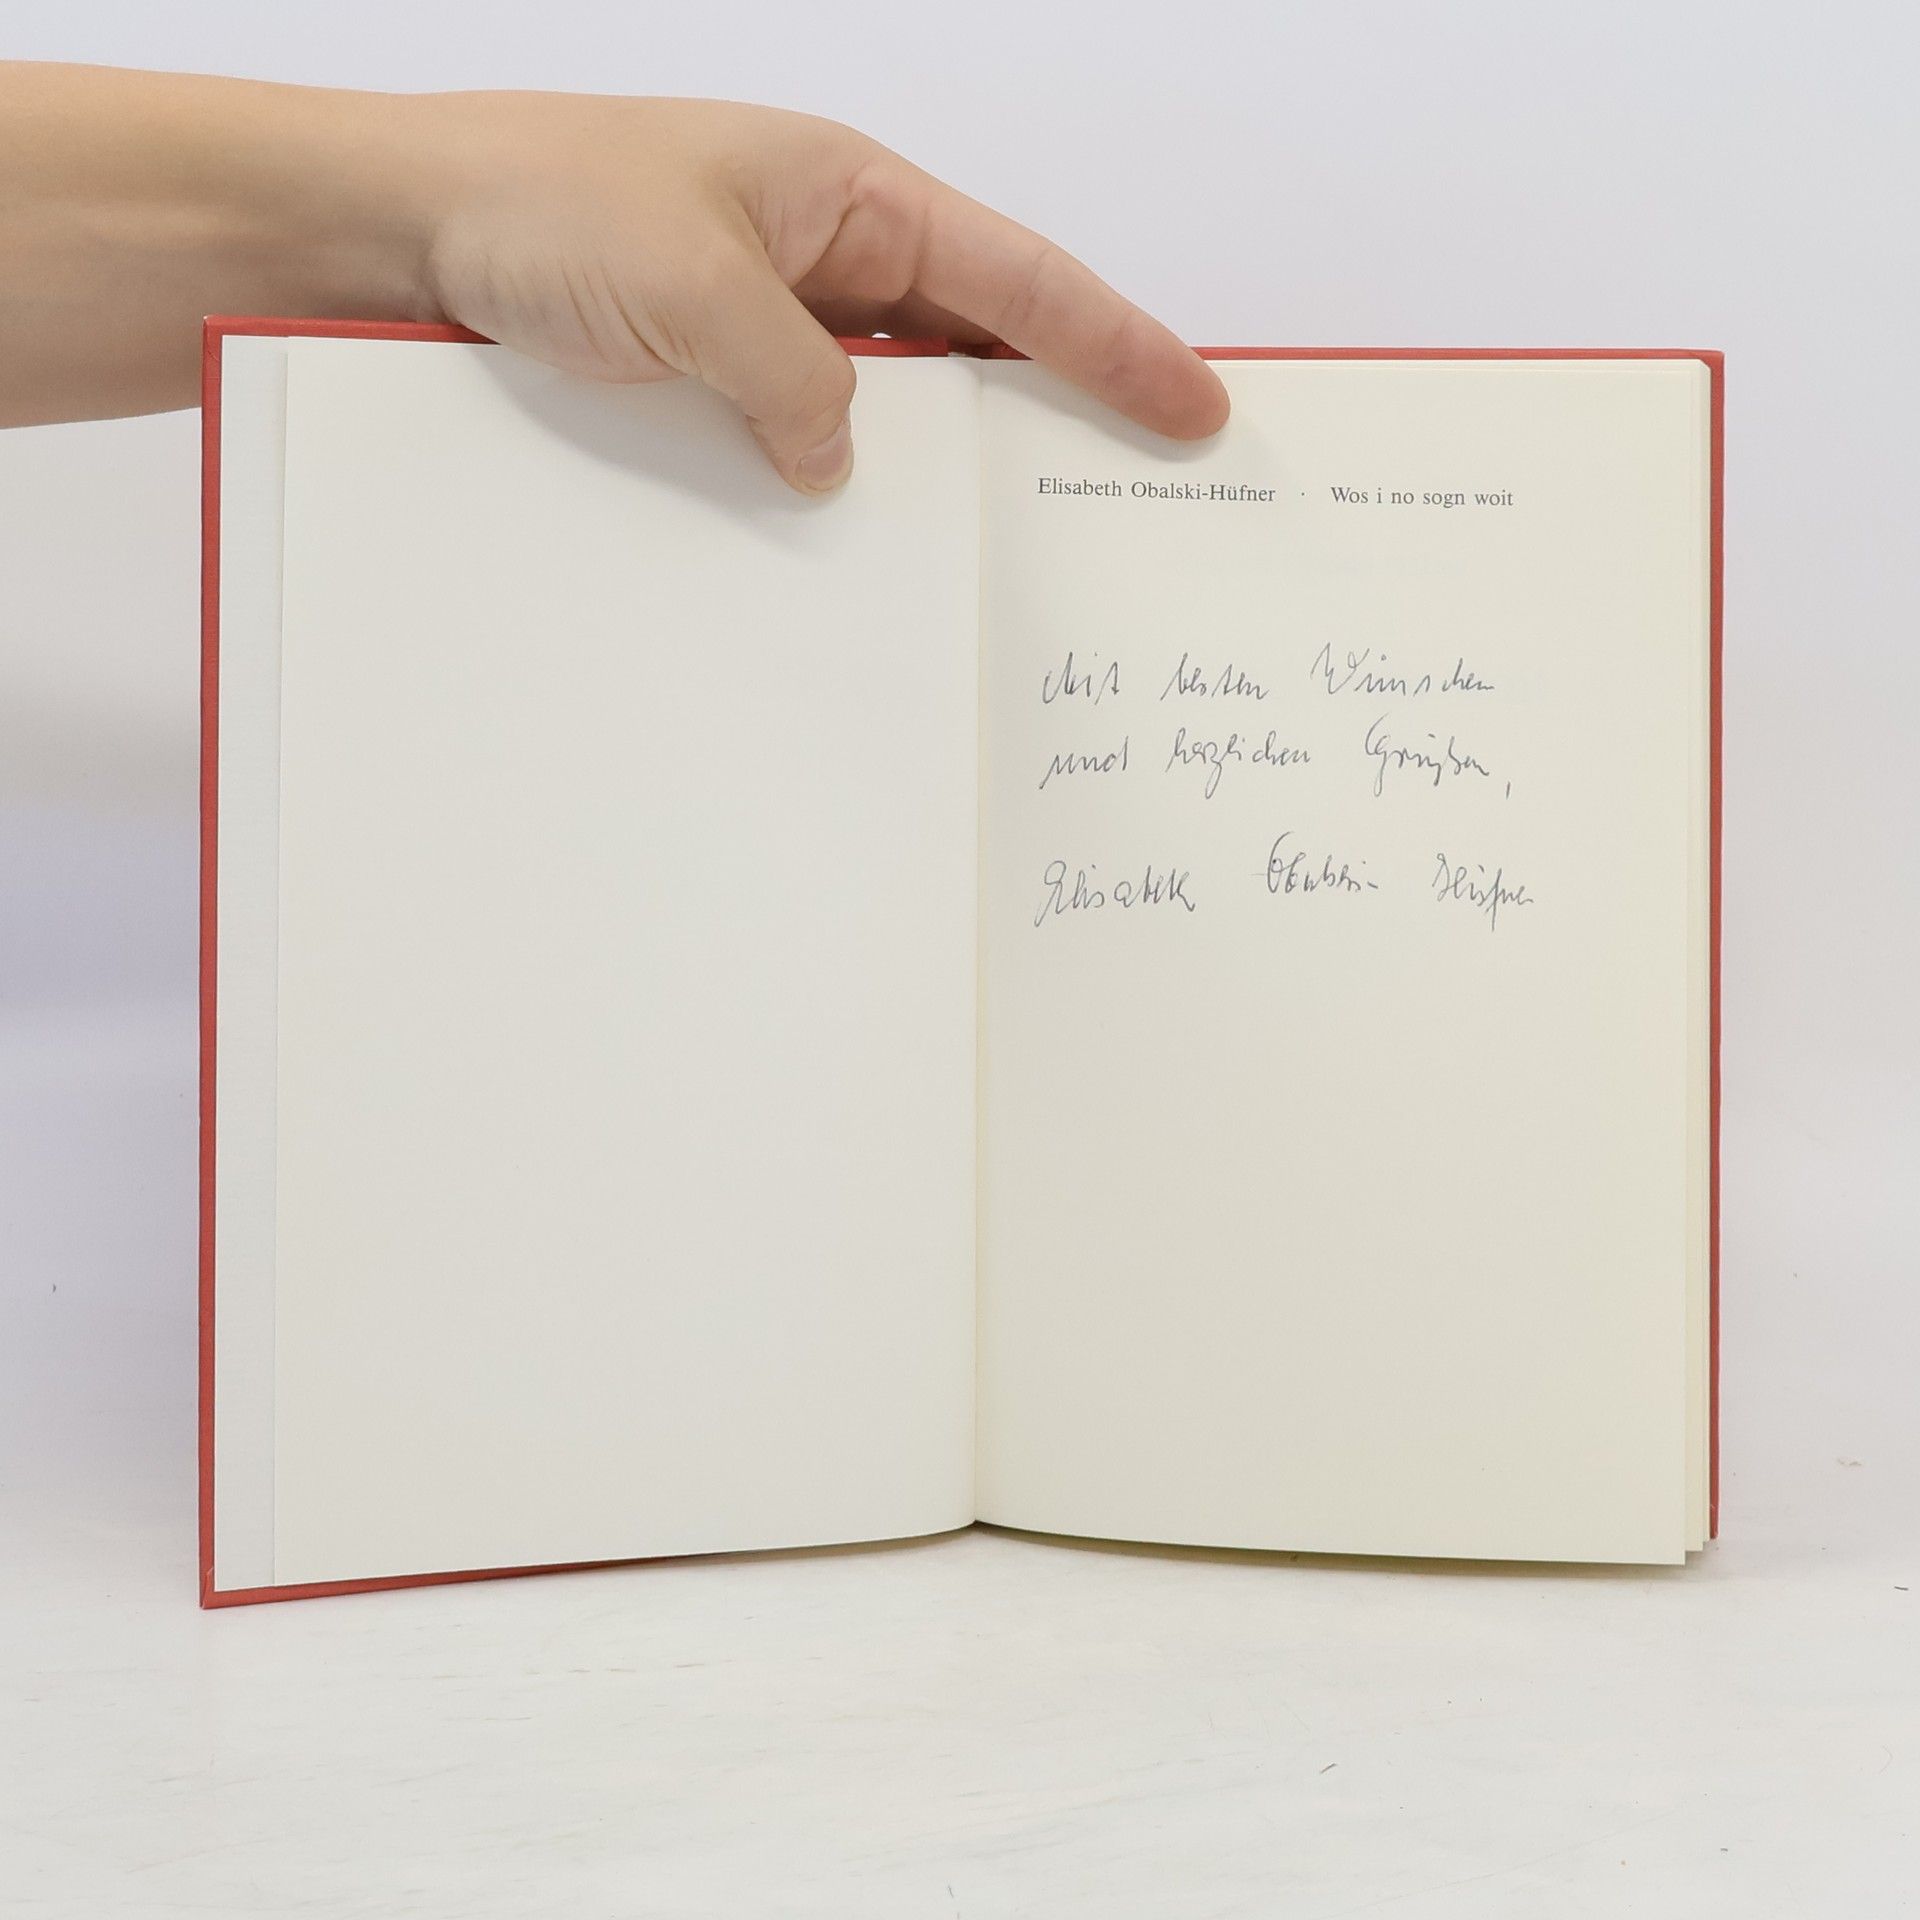 Elisabeth Obalski-Hüfner · Wos i no sogn woit
Mit besten Wünschen
und herzlichen Grüßen,
Elisabeth Obalski-Hüfner